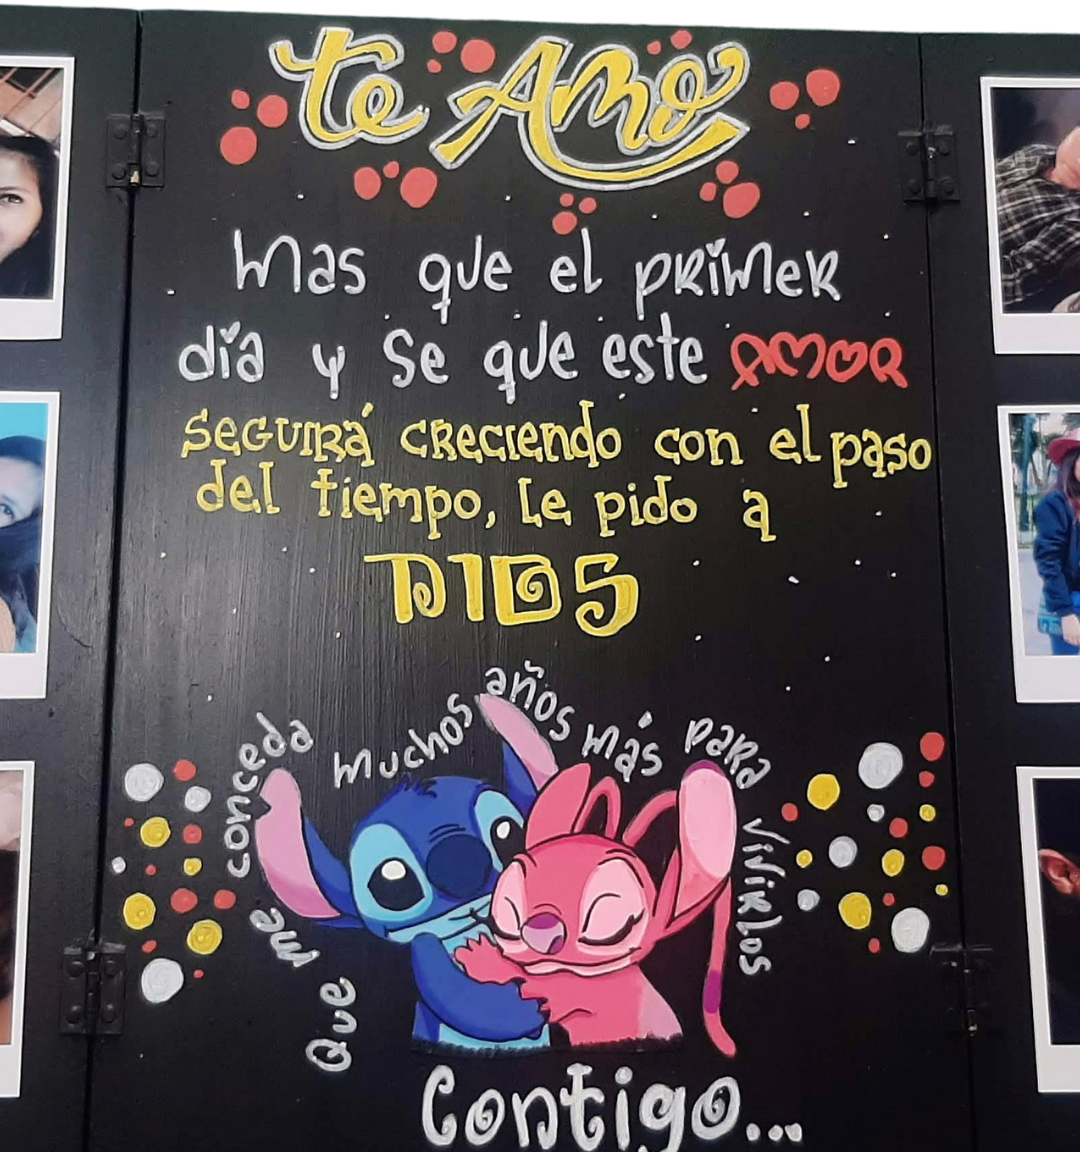 te Amo
Mas que el primer
día y se que este AMOR
SEGUIRÁ CRECIENDO con el paso
del tiempo, Le pido a
DIOS
Que me conceda muchos años más para vivirlos
Contigo...